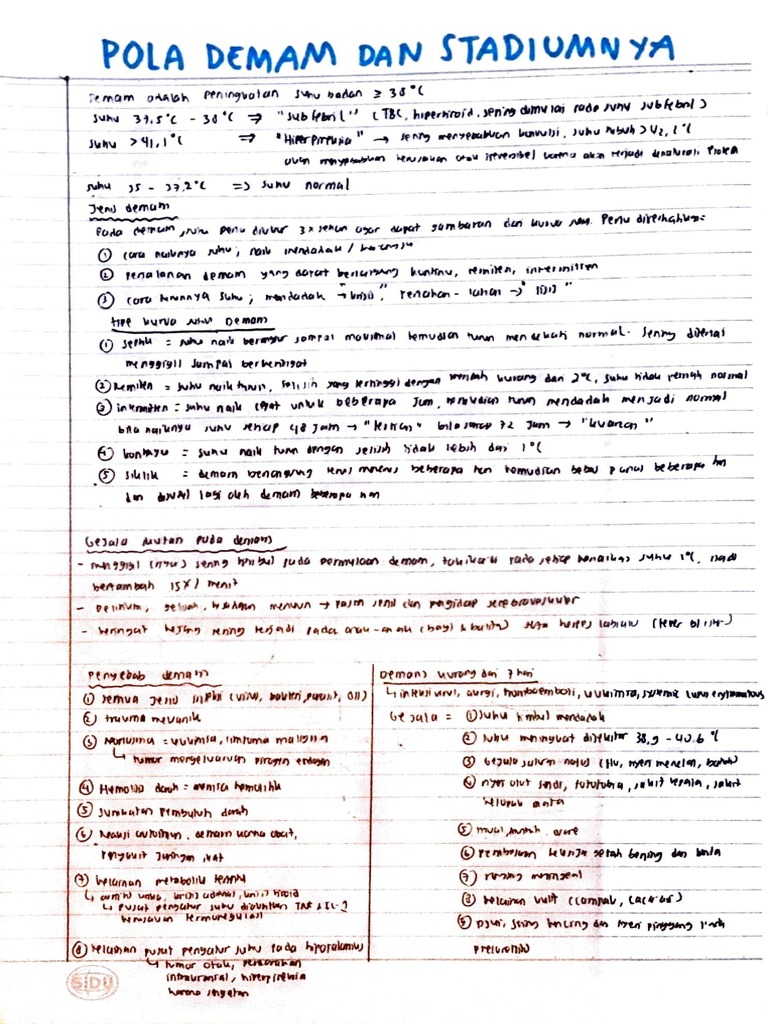 POLA DEMAM DAN STADIUMNYA
Demam adalah peningkatan suhu badan ≥ 38°C
suhu 37,5°C - 38°C ⇒ "subfebril" (TBC, hipertiroid, sering dimulai pada suhu subfebril)
suhu >41,1°C ⇒ "Hiperpireksia" → sering menyebabkan konvulsi, suhu tubuh >42,2°C
akan menyebabkan kerusakan otak irreversibel karena akan terjadi denaturasi protein
suhu 35 - 37,2°C ⇒ suhu normal
Jenis demam
Pada demam, suhu perlu diukur 3x sehari agar dapat gambaran dari kurva suhu. Perlu diperhatikan:
① cara naiknya suhu; naik mendadak /
② perjalanan demam yang dapat berlangsung kontinu, remiten, intermitten
③ cara turunnya suhu; mendadak → "krisis", perlahan-lahan → "lisis"
tipe kurva suhu Demam
① septik = suhu naik berangsur sampai maksimal kemudian turun mendekati normal. sering disertai
menggigil sampai berkeringat
② Remiten = suhu naik turun, selisih yang tertinggi dengan rendah kurang dari 2°C, suhu tidak pernah normal
③ intermiten = suhu naik cepat untuk beberapa jam, kemudian turun mendadak menjadi normal
bila naiknya suhu setiap 48 jam → "tertiana" bila setiap 72 jam → "kuartan"
④ kontinyu = suhu naik turun dengan selisih tidak lebih dari 1°C
⑤ siklik = demam berlangsung terus menerus beberapa hari kemudian bebas panas beberapa hari
dan disusul lagi oleh demam beberapa hari
Gejala ikutan pada demam
- menggigil (rigors) sering timbul pada permulaan demam, takikardi pada setiap kenaikan suhu 1°C, nadi
bertambah 15x/menit
- Delirium, gelisah, kesadaran menurun → pasien senil dan pengidap serebrovaskular
- keringat kejang sering terjadi pada anak-anak (bayi & balita) herpes labialis (fever blister)
Penyebab demam
① semua jenis infeksi (virus, bakteri, parasit, dll)
② trauma mekanik
③ Neoplasma = leukimia, limfoma maligna
↳ tumor mengeluarkan pirogen endogen
④ Hemolisis darah = anemia hemolitik
⑤ sumbatan pembuluh darah
⑥ Reaksi autoimun, demam karena obat,
penyakit jaringan ikat
⑦ kelainan metabolik tertentu
↳ artritis urika, krisis adrenal, krisis tiroid
↳ pusat pengatur suhu diakibatkan TNF & IL-1
kerusakan termoregulasi
⑧ kelainan pusat pengatur suhu pada hipotalamus
↳ tumor otak, perdarahan
intrakranial, hiperpireksia
karena sengatan
SiDU
Demam kurang dari 7 hari
↳ infeksi virus, alergi, tromboemboli, leukimia, systemic lupus erythematosus
Gejala = ① suhu timbul mendadak
② suhu meningkat disekitar 38,9 - 40,6 °C
③ Gejala saluran nafas (flu, nyeri menelan, batuk)
④ nyeri otot sendi, fotofobia, sakit kepala, sakit
kelopak mata
⑤ mual, muntah, diare
⑥ Pembesaran kelenjar getah bening dan limfa
⑦ rangsang meningeal
⑧ kelainan kulit (campak, cacar air)
⑨ Disuri, sering kencing dan nyeri pinggang